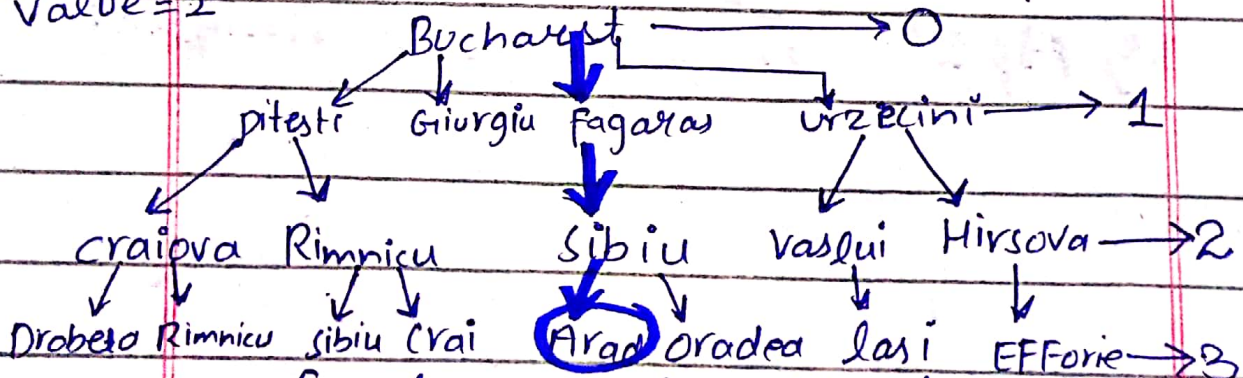 Value = 2
Bucharest → 0
Pitesti Giurgiu Fagaras Urzecini → 1
Craiova Rimnicu Sibiu Vaslui Hirsova → 2
Drobeta Rimnicu Sibiu Crai Arad Oradea Iasi EFForie → 3